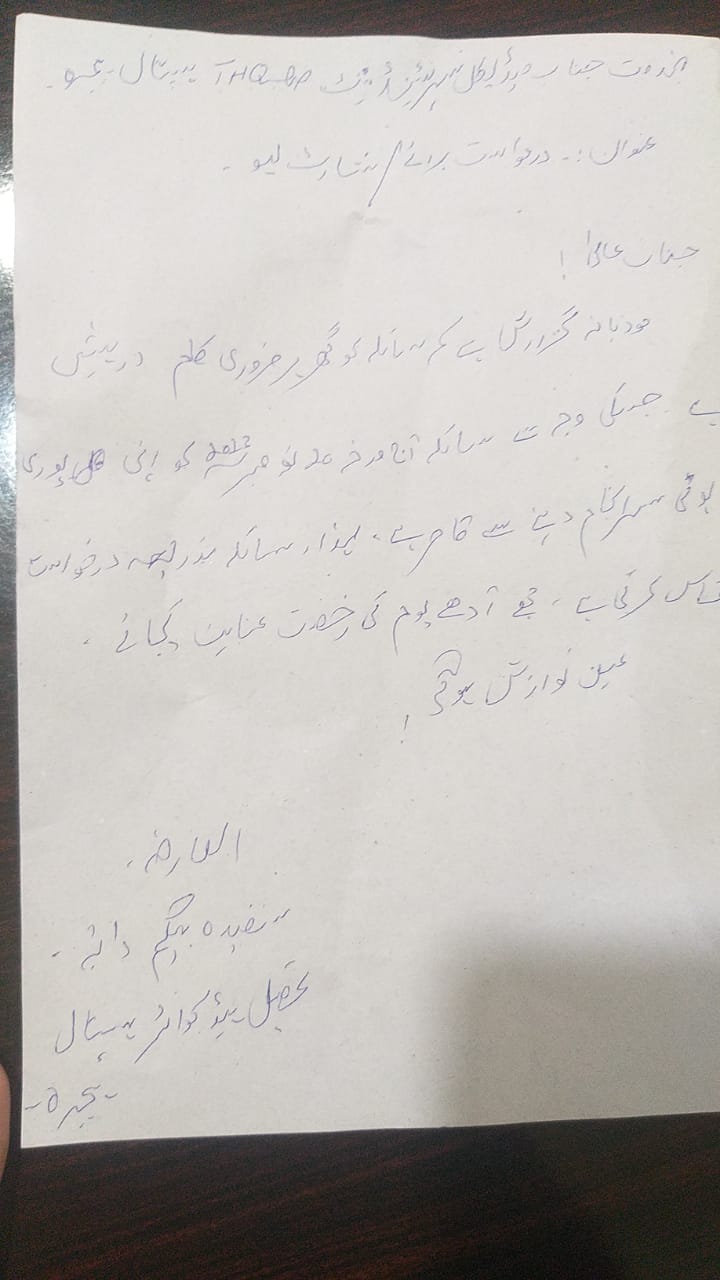 بخدمت جناب میڈیکل سپرنٹینڈنٹ THQ ہسپتال ہجیرہ۔
عنوان:۔ درخواست برائے شارٹ لیو ۔
جناب عالیٰ !
مودبانہ گزارش ہے کہ سائلہ کو گھر پر ضروری کام درپیش
ہے جسکی وجہ سے سائلہ آج مورخہ 20 نومبر کو اپنی پوری
ڈیوٹی سرانجام دینے سے قاصر ہے۔ لہذا سائلہ بذریعہ درخواست
التماس کرتی ہے ، مجھے آدھے یوم کی رخصت عنایت کیجائے ۔
عین نوازش ہوگی !
العارضہ ۔
بیگم دائیہ ۔
تحصیل ہیڈ کوارٹر ہسپتال
- ہجیرہ -